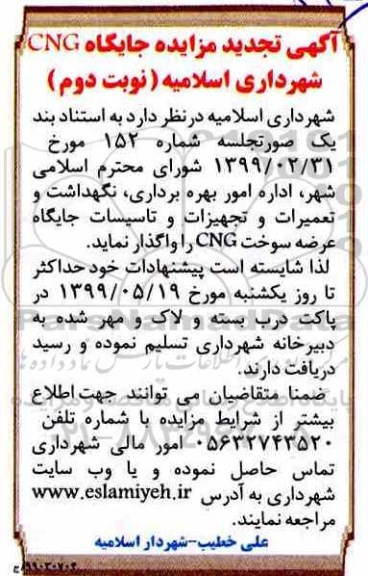 آگهی تجدید مزایده جایگاه CNG
شهرداری اسلامیه (نوبت دوم)
شهرداری اسلامیه درنظر دارد به استناد بند
یک صورتجلسه شماره ۱۵۲ مورخ
۱۳۹۹/۰۲/۳۱ شورای محترم اسلامی
شهر، اداره امور بهره برداری، نگهداشت و
تعمیرات و تجهیزات و تاسیسات جایگاه
عرضه سوخت CNG را واگذار نماید.
لذا شایسته است پیشنهادات خود حداکثر
تا روز یکشنبه مورخ ۱۳۹۹/۰۵/۱۹ در
پاکت درب بسته و لاک و مهر شده به
دبیرخانه شهرداری تسلیم نموده و رسید
دریافت دارند.
ضمنا متقاضیان می توانند جهت اطلاع
بیشتر از شرایط مزایده با شماره تلفن
۰۵۶۳۲۷۴۳۵۲۰ امور مالی شهرداری
تماس حاصل نموده و یا وب سایت
شهرداری به آدرس www.eslamiyeh.ir
مراجعه نمایند.
علی خطیب-شهردار اسلامیه
ParsNamadData